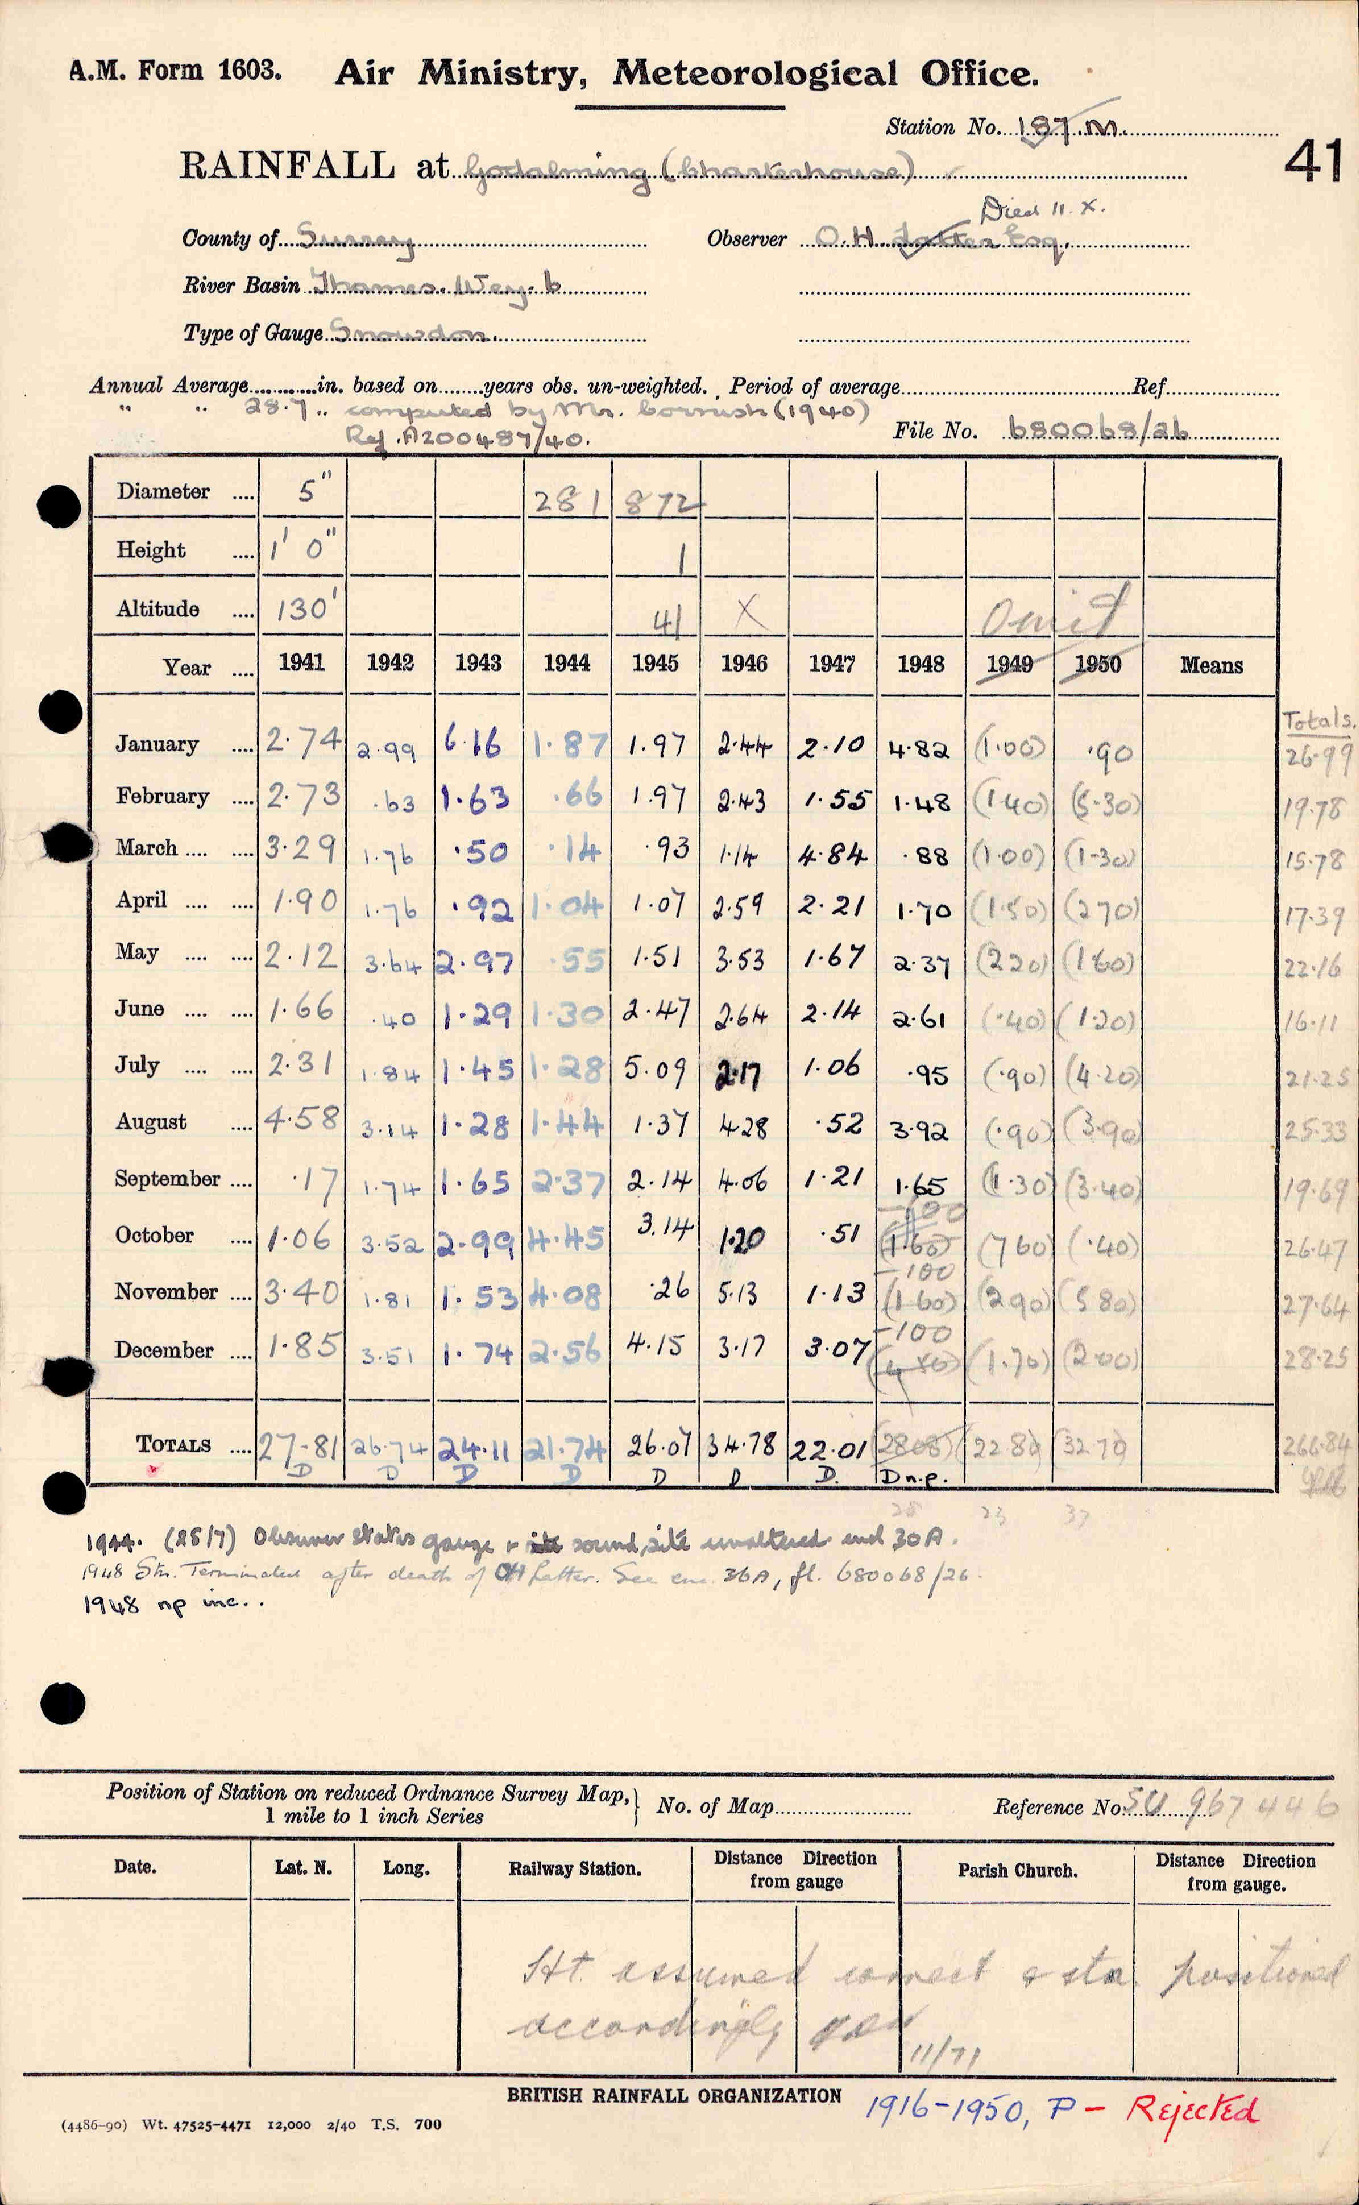 A.M. Form 1603. Air Ministry, Meteorological Office.
Station No. 187.M.
41
RAINFALL at Godalming (Charterhouse)
Died 11. X.
County of Surrey Observer O. H. Latter Esq.
River Basin Thames. Wey. b
Type of Gauge Snowdon.
Annual Average in. based on years obs. un-weighted. Period of average Ref.
" " 28.7 .. computed by Mr. Cornish (1940)
Ref. A200487/40. File No. 680068/26
Diameter 5" 281 872
Height 1' 0" 1
Altitude 130' 41 X Omit
Year 1941 1942 1943 1944 1945 1946 1947 1948 1949 1950 Means
Totals.
January 2.74 2.99 6.16 1.87 1.97 2.44 2.10 4.82 (1.00) .90 26.99
February 2.73 .63 1.63 .66 1.97 2.43 1.55 1.48 (1.40) (5.30) 19.78
March 3.29 1.76 .50 .14 .93 1.14 4.84 .88 (1.00) (1.30) 15.78
April 1.90 1.76 .92 1.04 1.07 2.59 2.21 1.70 (1.50) (2.70) 17.39
May 2.12 3.64 2.97 .55 1.51 3.53 1.67 2.37 (2.20) (1.60) 22.16
June 1.66 .40 1.29 1.30 2.47 2.64 2.14 2.61 (.40) (1.20) 16.11
July 2.31 1.84 1.45 1.28 5.09 2.17 1.06 .95 (.90) (4.20) 21.25
August 4.58 3.14 1.28 1.44 1.37 4.28 .52 3.92 (.90) (3.90) 25.33
September .17 1.74 1.65 2.37 2.14 4.06 1.21 1.65 (1.30) (3.40) 19.69
-100
October 1.06 3.52 2.99 4.45 3.14 1.20 .51 (1.60) (7.60) (.40) 26.47
-100
November 3.40 1.81 1.53 4.08 .26 5.13 1.13 (1.60) (2.90) (5.80) 27.64
-100
December 1.85 3.51 1.74 2.56 4.15 3.17 3.07 (4.80) (1.70) (2.00) 28.25
TOTALS 27.81 26.74 24.11 21.74 26.07 34.78 22.01 (28.08) (22.80) (32.70) 266.84
D D D D D D D. D n.p.
28 23 37
1944. (28/7) Observer states gauge & site sound, site unaltered encl 30A.
1948 Stn. Terminated after death of OH Latter. See enc. 36A, fl. 680068/26
1948 np inc..
Position of Station on reduced Ordnance Survey Map, 1 mile to 1 inch Series No. of Map Reference No. SU 967 446
Date. Lat. N. Long. Railway Station. Distance Direction from gauge Parish Church. Distance Direction from gauge.
Ht. assumed correct & stn. positioned
accordingly
11/71
BRITISH RAINFALL ORGANIZATION 1916-1950, P - Rejected
(4486-90) Wt. 47525-4471 12,000 2/40 T.S. 700